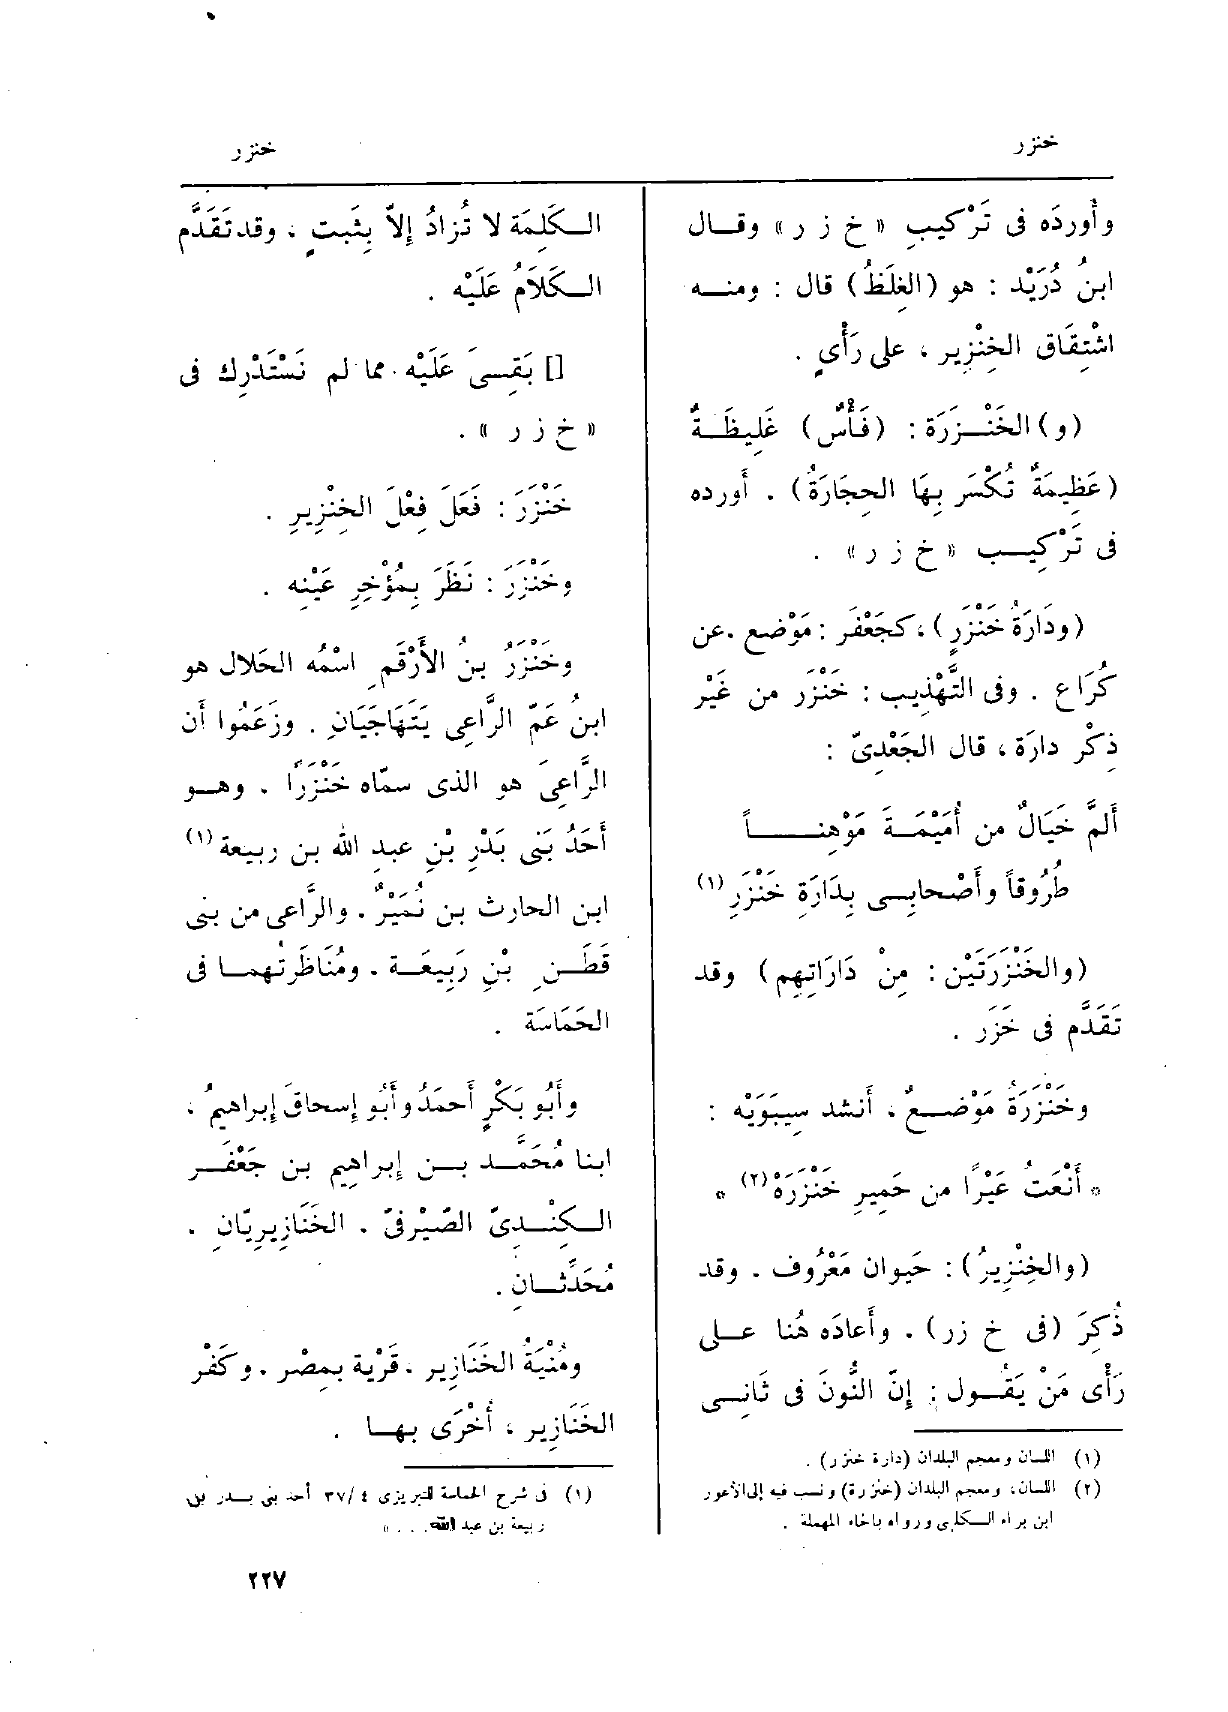 خنزر
خنزر
وأوردَه فى تَرْكيبِ « خ ز ر » وقال
ابنُ دُرَيْد : هو (الغِلَظُ) قال : ومنه
اشْتِقَاق الخِنْزِير ، على رَأْىٍ .
(و) الخَنْزَرَة : (فَأْسٌ) غَلِيظَةٌ
(عَظِيمَةٌ تُكْسَر بِهَا الحِجَارَةُ) . أورده
فى تَرْكِيب « خ ز ر » .
(ودَارَةُ خَنْزَرٍ) ، كجَعْفَر : مَوْضع . عن
كُرَاع . وفى التَّهْذِيب : خَنْزَر من غَيْر
ذِكْر دارَة ، قال الجَعْدِىّ :
ألمَّ خَيَالٌ من أُمَيْمَةَ مَوْهِناً
طُرُوقاً وأَصْحابِى بِدَارَةِ خَنْزَرِ (١)
(والخَنْزَرَتَيْن : مِنْ دَارَاتِهِم) وقد
تَقَدَّم فى خَزَر .
وخَنْزَرَةُ مَوْضعٌ ، أَنشد سِيبَوَيْه :
* أَنْعَتُ عَيْرًا من حَمِيرِ خَنْزَرَهْ (٢) *
(والخِنْزِيرُ) : حَيوان مَعْرُوف . وقد
ذُكِرَ (فى خ زر) . وأَعادَه هُنا على
رَأْى مَنْ يَقُول : إِنّ النُّونَ فى ثَانِى
(١) اللسان ومعجم البلدان (دارة خنزر) .
(٢) اللسان، ومعجم البلدان (خنزرة) ونسب فيه إلى الأعور
ابن براء الكلبى ورواه بالخاء المهملة .
الكَلِمَة لا تُزادُ إِلاّ بِثَبتٍ ، وقد تَقَدَّم
الكَلاَمُ عَلَيْه .
[] بَقِىَ عَلَيْه . مما لم نَسْتَدْرِك فى
« خ ز ر » .
خَنْزَرَ : فَعَلَ فِعْلَ الخِنْزِيرِ .
وخَنْزَرَ : نَظَرَ بِمُؤْخِرِ عَيْنِه .
وخَنْزَرُ بنُ الأَرْقَمِ اسْمُه الحَلال هو
ابنُ عَمّ الرَّاعِى يَتَهَاجَيَانِ . وزَعَمُوا أَن
الرَّاعِىَ هو الذى سمّاه خَنْزَرًا . وهو
أَحَدُ بَنى بَدْرِ بْنِ عبدِ الله بن ربيعة (١)
ابن الحارث بن نُمَيْرٌ . والرَّاعى من بنى
قَطَن بْنِ رَبِيعَة . ومُنَاظَرتُهما فى
الحَمَاسَة .
وأَبُو بَكْرٍ أَحمَدُ وأَبُو إِسحاقَ إِبراهيمُ ،
ابنا مُحَمَّد بن إِبراهِيم بن جَعْفَر
الكِنْدِىّ الصَّيْرفىّ . الخَنَازِيرِيّانِ .
مُحَدِّثانِ .
ومُنْيَةُ الخَنَازِير ، قَرْية بمِصْر . وكَفْر
الخَنَازِير ، أُخْرَى بها .
(١) فى شرح الحماسة للتبريزى ٤ /٣٧ أحد بنى بدر بن
ربيعة بن عبد الله . . . »
٢٢٧